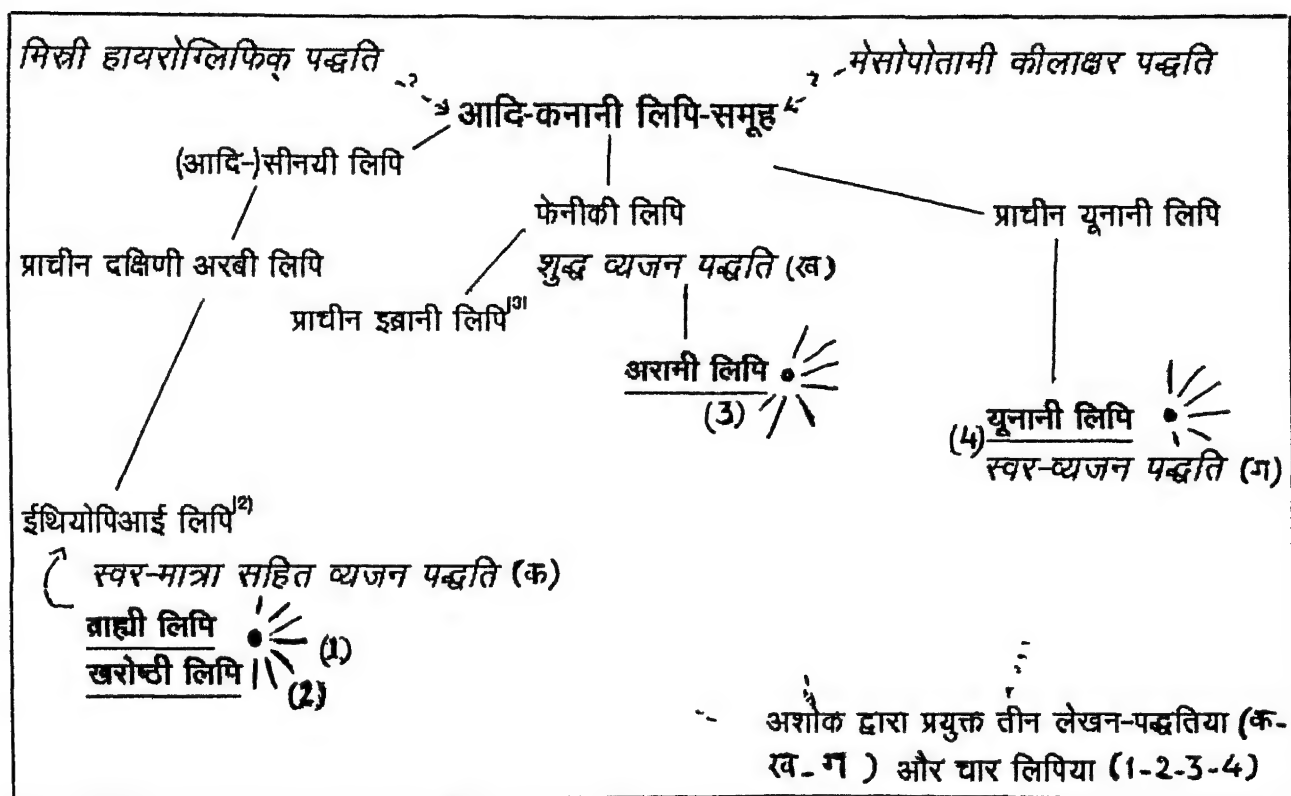 मिस्री हायरोग्लिफिक् पद्धति
मेसोपोतामी कीलाक्षर पद्धति
-?
?
आदि-कनानी लिपि-समूह
(आदि-)सीनयी लिपि
फेनीकी लिपि
प्राचीन यूनानी लिपि
प्राचीन दक्षिणी अरबी लिपि
शुद्ध व्यजन पद्धति (ख)
प्राचीन इब्रानी लिपि|3|
अरामी लिपि
(3)
(4) यूनानी लिपि
स्वर-व्यजन पद्धति (ग)
ईथियोपिआई लिपि|2)
स्वर-मात्रा सहित व्यजन पद्धति (क)
ब्राह्मी लिपि
(1)
खरोष्ठी लिपि
(2)
अशोक द्वारा प्रयुक्त तीन लेखन-पद्धतिया (क-
ख-ग) और चार लिपिया (1-2-3-4)